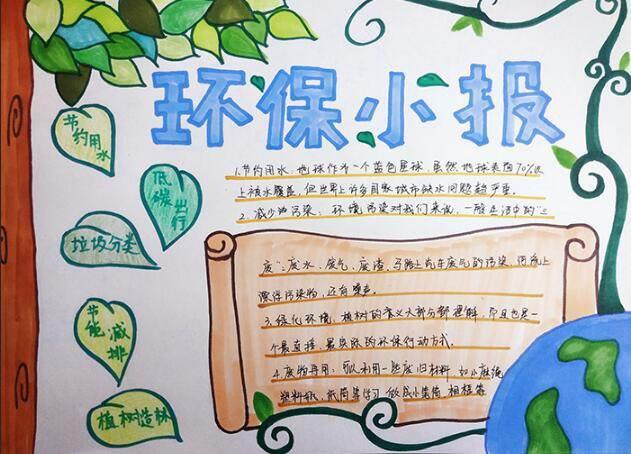 环保小报
节约用水
低碳出行
垃圾分类
节能减排
植树造林
1.节约用水:地球作为一个蓝色星球,虽然地球表面70%以
上被水覆盖,但世界上许多国家城市缺水问题趋严重。
2.减少污染:环境污染对我们来说,一般生活中的"三
废":废水、废气、废渣,马路上汽车废气的污染,河流上
漂浮污染物,还有噪声。
3.绿化环境:植树的意义大部分都理解,而且也是一
个最直接、最实际的环保行动方式。
4.废物再用:可以利用一些废旧材料,如小
塑料瓶,纸筒等学习做成小笔筒,相框等